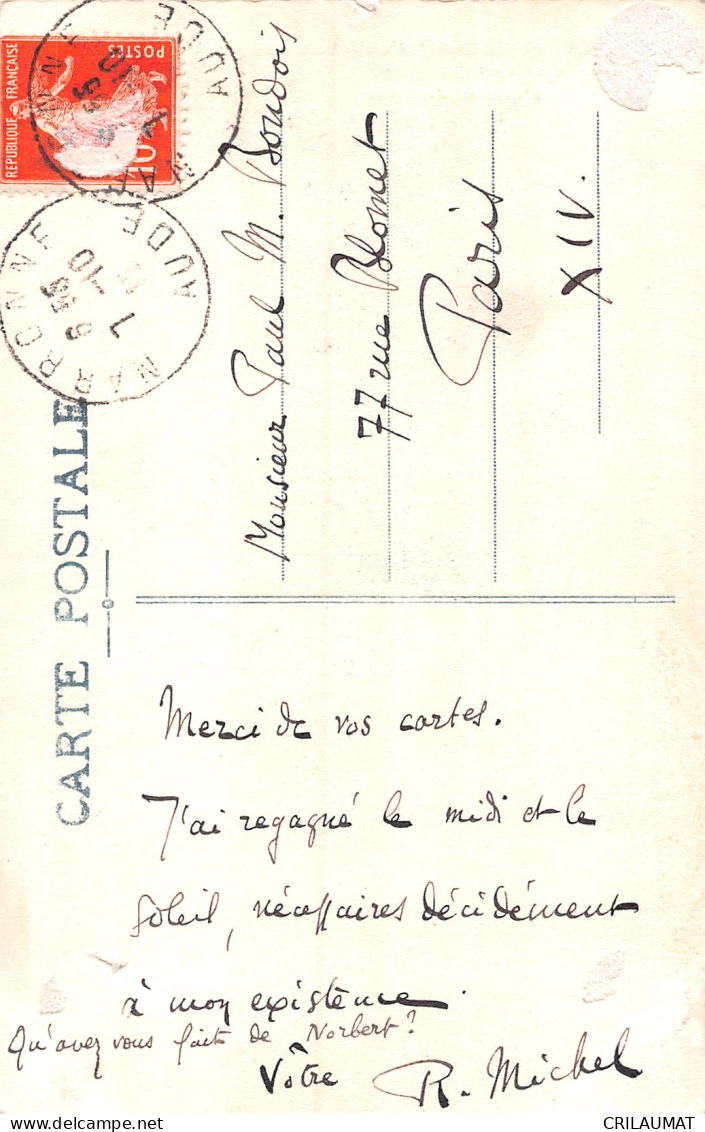 CARTE POSTALE
REPUBLIQUE FRANÇAISE
POSTES
10
NARBONNE
AUDE
NARBONNE
AUDE
Monsieur Paul M. Boudois
77 rue Blomet
Paris
XIV.
Merci de vos cartes.
J'ai regagné le midi et le
soleil, nécessaires décidément
à mon existence.
Qu'avez vous fait de Norbert?
Vôtre R. Michel
CRILAUMAT